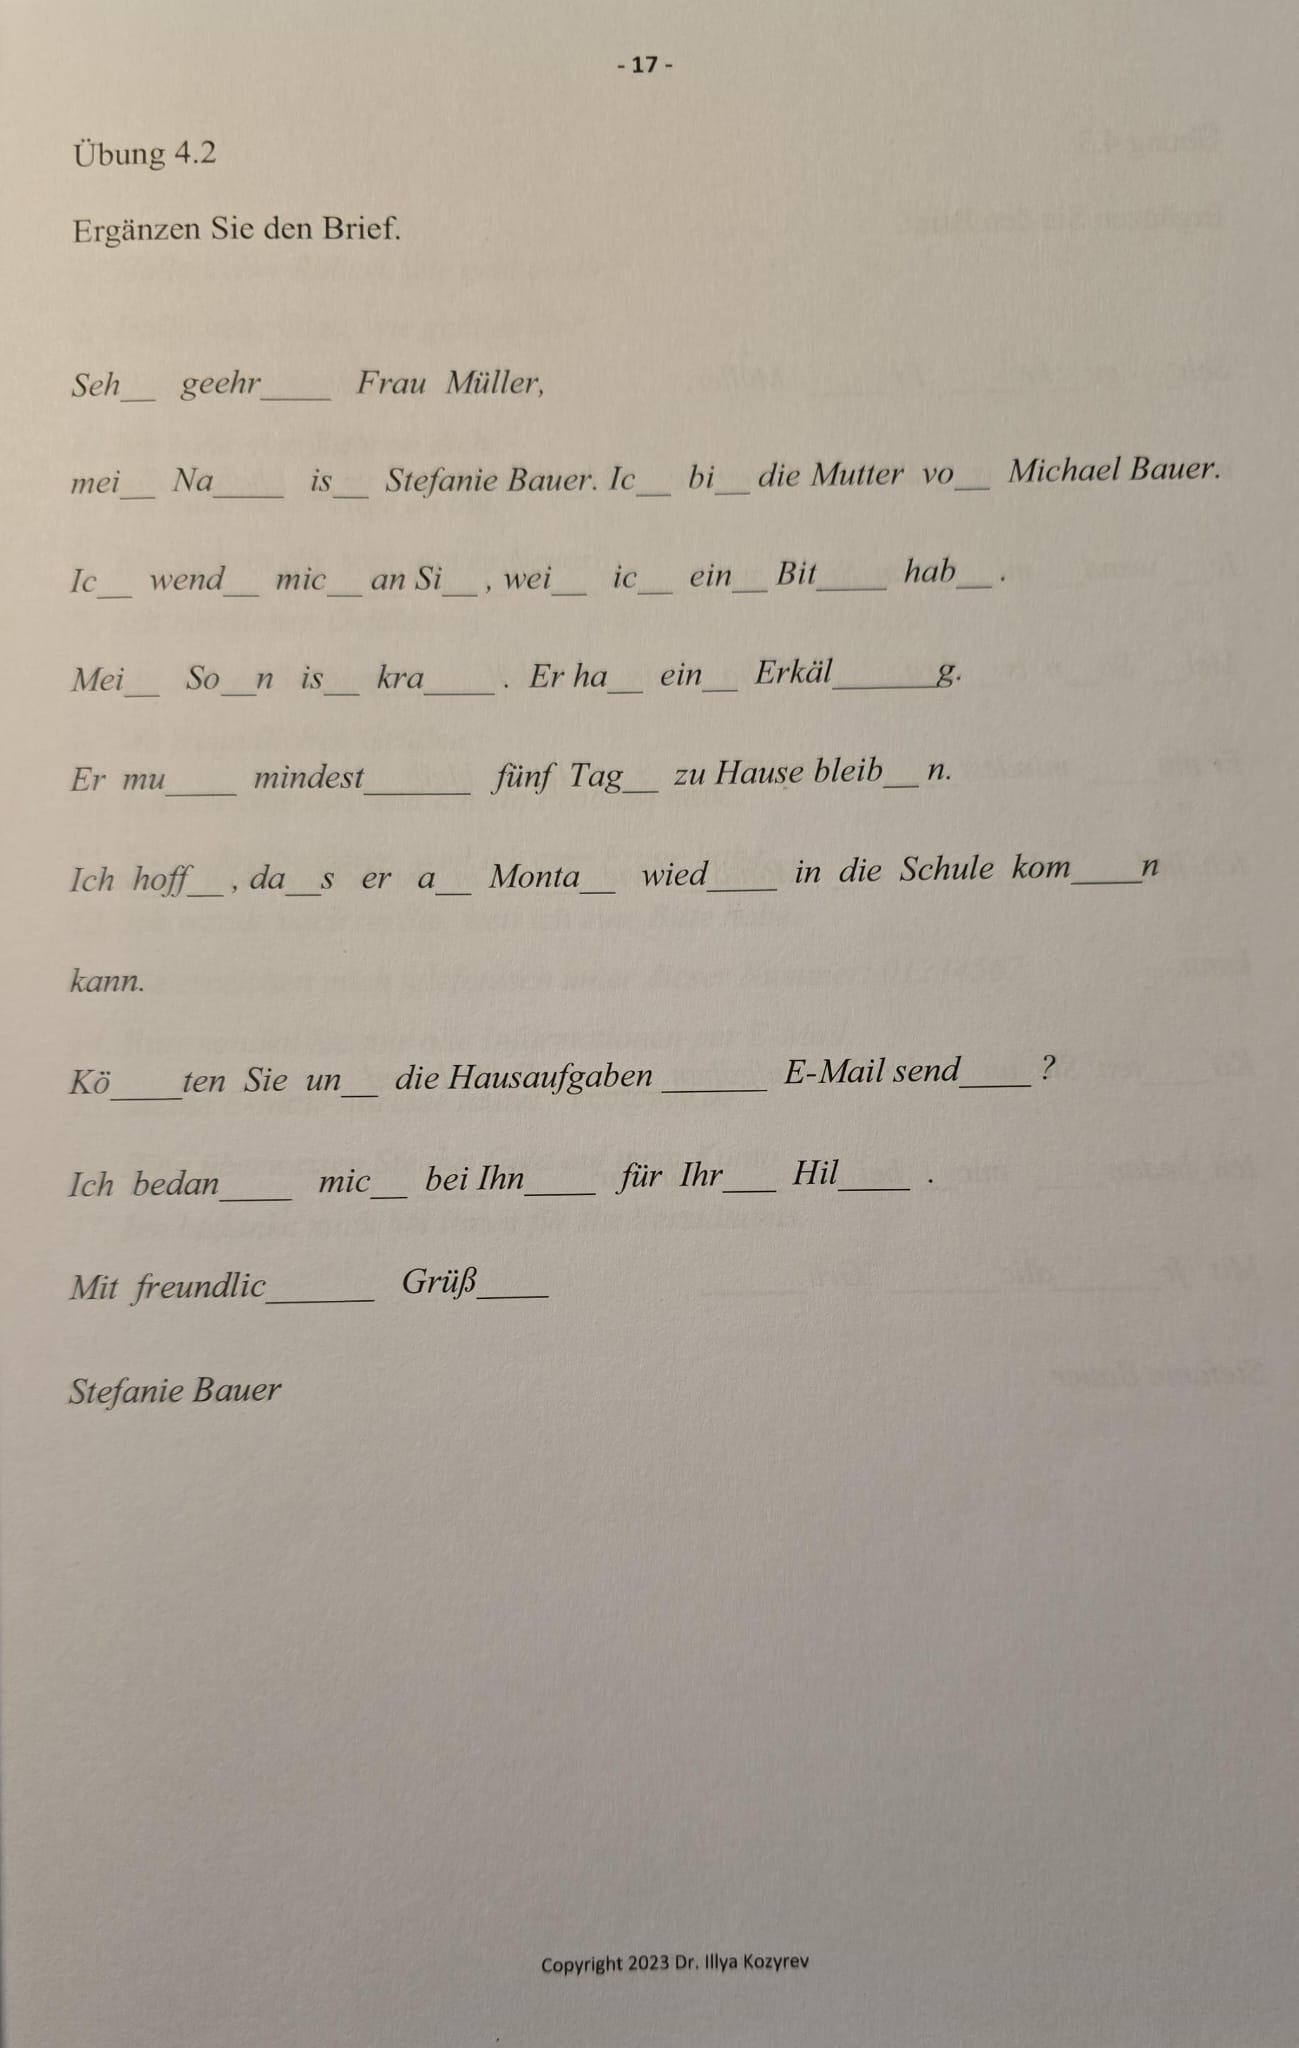 - 17 -
Übung 4.2
Ergänzen Sie den Brief.
Seh__ geehr____ Frau Müller,
mei__ Na____ is__ Stefanie Bauer. Ic__ bi__ die Mutter vo__ Michael Bauer.
Ic__ wend__ mic__ an Si__ , wei__ ic__ ein__ Bit____ hab__ .
Mei__ So__n is__ kra____ . Er ha__ ein__ Erkäl______g.
Er mu____ mindest______ fünf Tag__ zu Hause bleib__ n.
Ich hoff__ , da__s er a__ Monta__ wied____ in die Schule kom____n
kann.
Kö____ten Sie un__ die Hausaufgaben ______ E-Mail send____ ?
Ich bedan____ mic__ bei Ihn____ für Ihr___ Hil____ .
Mit freundlic______ Grüß____
Stefanie Bauer
Copyright 2023 Dr. Illya Kozyrev